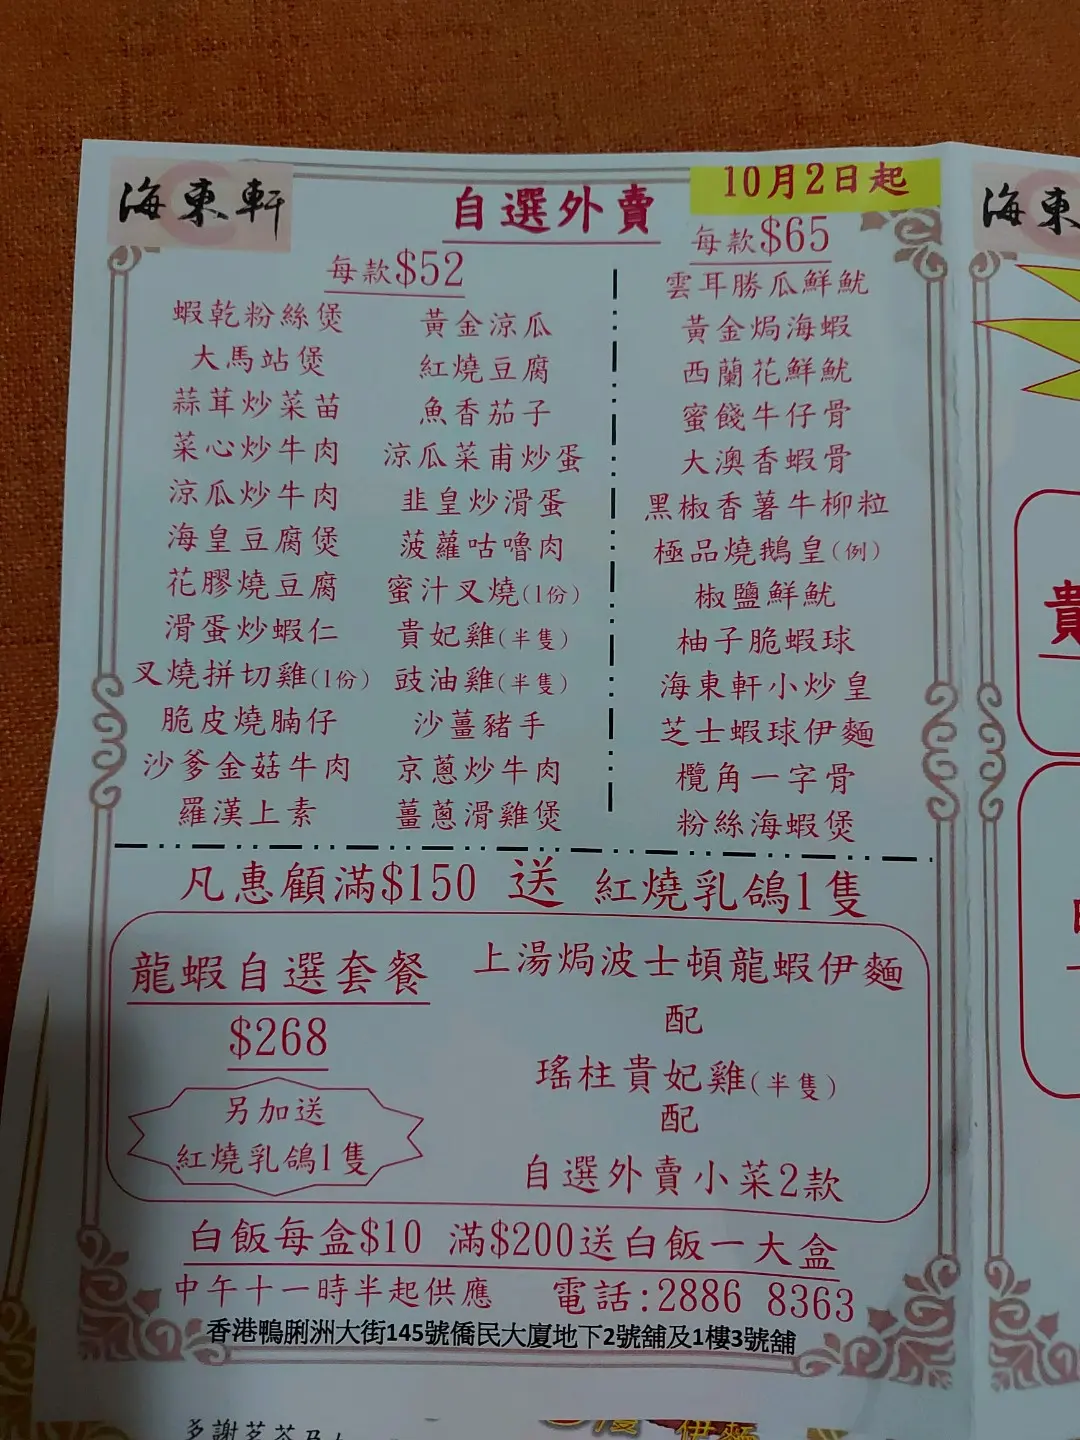 海東軒
自選外賣
10月2日起
每款$52
蝦乾粉絲煲
大馬站煲
蒜茸炒菜苗
菜心炒牛肉
涼瓜炒牛肉
海皇豆腐煲
花膠燒豆腐
滑蛋炒蝦仁
叉燒拼切雞(1份)
脆皮燒腩仔
沙爹金菇牛肉
羅漢上素
黃金涼瓜
紅燒豆腐
魚香茄子
涼瓜菜甫炒蛋
韭皇炒滑蛋
菠蘿咕嚕肉
蜜汁叉燒(1份)
貴妃雞(半隻)
豉油雞(半隻)
沙薑豬手
京蔥炒牛肉
薑蔥滑雞煲
每款$65
雲耳勝瓜鮮魷
黃金焗海蝦
西蘭花鮮魷
蜜餞牛仔骨
大澳香蝦骨
黑椒香薯牛柳粒
極品燒鵝皇(例)
椒鹽鮮魷
柚子脆蝦球
海東軒小炒皇
芝士蝦球伊麵
欖角一字骨
粉絲海蝦煲
凡惠顧滿$150 送 紅燒乳鴿1隻
龍蝦自選套餐
$268
另加送
紅燒乳鴿1隻
上湯焗波士頓龍蝦伊麵
配
瑤柱貴妃雞(半隻)
配
自選外賣小菜2款
白飯每盒$10 滿$200送白飯一大盒
中午十一時半起供應 電話:2886 8363
香港鴨脷洲大街145號僑民大廈地下2號舖及1樓3號舖
海東
貴
多謝茗茶及
伊麵